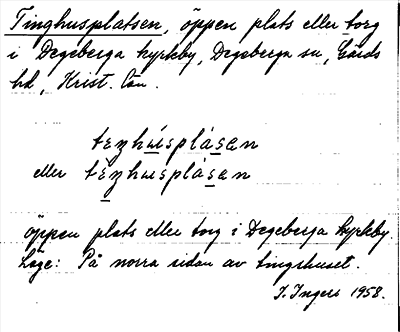 Tinghusplatsen, öppen plats eller torg
i Degeberga kyrkby, Degeberga sn, Gärds
hd, Krist. län.
teŋhúsplásan
eller téŋhusplàsan
öppen plats eller torg i Degeberga kyrkby.
Läge: På norra sidan av tingshuset.
I. Ingers 1958.